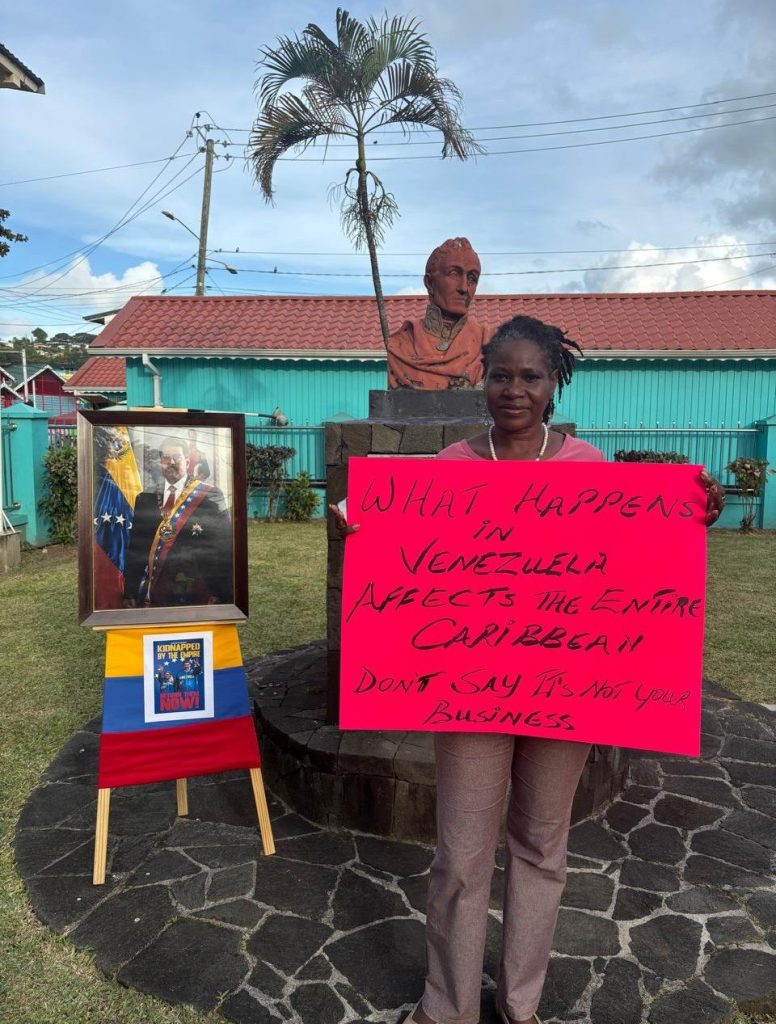 WHAT HAPPENS
in
VENEZUELA
AFFECTS THE ENTIRE
CARIBBEAN
DON'T SAY IT'S NOT YOUR
BUSINESS
KIDNAPPED
BY THE EMPIRE
RETURN THEM
NOW!